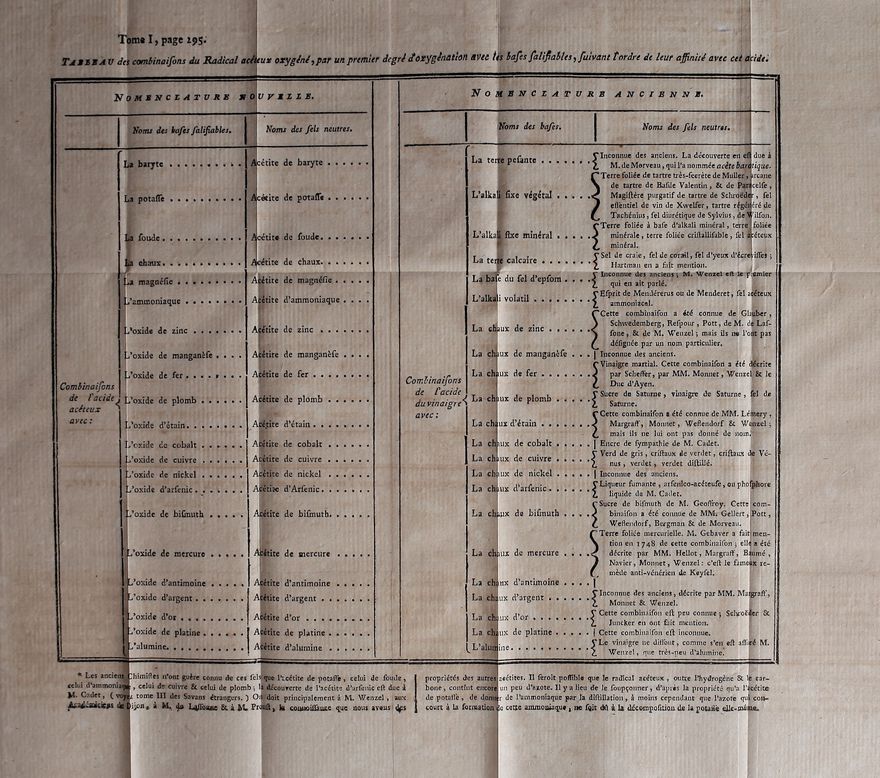 Tome I, page 195.
TABLEAU des combinaiſons du Radical acéteux oxygéné, par un premier degré d'oxygénation avec les baſes ſalifiables, ſuivant l'ordre de leur affinité avec cet acide.
NOMENCLATURE NOUVELLE.
Noms des baſes ſalifiables. Noms des ſels neutres.
Combinaiſons
de l'acide
acéteux
avec :
La baryte . . . . . . . . . . Acétite de baryte . . . . . .
La potaſſe . . . . . . . . . . Acétite de potaſſe . . . . . .
La ſoude . . . . . . . . . . Acétite de ſoude . . . . . .
La chaux . . . . . . . . . . Acétite de chaux . . . . . .
La magnéſie . . . . . . . . Acétite de magnéſie . . . . .
L'ammoniaque . . . . . . . . Acétite d'ammoniaque . . . .
L'oxide de zinc . . . . . . . Acétite de zinc . . . . . . .
L'oxide de manganèſe . . . . Acétite de manganèſe . . . .
L'oxide de fer . . . . . . . . Acétite de fer . . . . . . . .
L'oxide de plomb . . . . . . Acétite de plomb . . . . . .
L'oxide d'étain . . . . . . . Acétite d'étain . . . . . . .
L'oxide de cobalt . . . . . . Acétite de cobalt . . . . . .
L'oxide de cuivre . . . . . . Acétite de cuivre . . . . . .
L'oxide de nickel . . . . . . Acétite de nickel . . . . . .
L'oxide d'arſenic . . . . . . Acétite d'Arſenic . . . . . .
L'oxide de biſmuth . . . . . Acétite de biſmuth . . . . . .
L'oxide de mercure . . . . . Acétite de mercure . . . . .
L'oxide d'antimoine . . . . . Acétite d'antimoine . . . . .
L'oxide d'argent . . . . . . . Acétite d'argent . . . . . .
L'oxide d'or . . . . . . . . . Acétite d'or . . . . . . . .
L'oxide de platine . . . . . . Acétite de platine . . . . . .
L'alumine . . . . . . . . . . Acétite d'alumine . . . . . .
NOMENCLATURE ANCIENNE.
Noms des baſes. Noms des ſels neutres.
Combinaiſons
de l'acide
du vinaigre
avec :
La terre peſante . . . . . . . Inconnue des anciens. La découverte en eſt due à
M. de Morveau, qui l'a nommée acète barotique.
L'alkali fixe végétal . . . . . Terre foliée de tartre très-ſecrète de Muller, arcane
de tartre de Baſile Valentin, & de Paracelſe,
Magiſtère purgatif de tartre de Schroëder, ſel
eſſentiel de vin de Xwelfer, tartre régénéré de
Tachénius, ſel diurétique de Sylvius, de Wilſon.
L'alkali fixe minéral . . . . . Terre foliée à baſe d'alkali minéral, terre foliée
minérale, terre foliée criſtalliſable, ſel acéteux
minéral.
La terre calcaire . . . . . . . Sel de craie, ſel de corail, ſel d'yeux d'écreviſſes ;
Hartman en a fait mention.
La baſe du ſel d'epſom . . . . Inconnue des anciens ; M. Wenzel eſt le premier
qui en ait parlé.
L'alkali volatil . . . . . . . . Eſprit de Mendérerus ou de Menderet, ſel acéteux
ammoniacel.
La chaux de zinc . . . . . . Cette combinaiſon a été connue de Glauber,
Schwedemberg, Reſpour, Pott, de M. de Laſ-
ſone, & de M. Wenzel ; mais ils ne l'ont pas
déſignée par un nom particulier.
La chaux de manganèſe . . . Inconnue des anciens.
La chaux de fer . . . . . . . Vinaigre martial. Cette combinaiſon a été décrite
par Scheffer, par MM. Monnet, Wenzel & le
Duc d'Ayen.
La chaux de plomb . . . . . Sucre de Saturne, vinaigre de Saturne, ſel de
Saturne.
La chaux d'étain . . . . . . . Cette combinaiſon a été connue de MM. Lémery,
Margraff, Monnet, Weſlendorf & Wenzel ;
mais ils ne lui ont pas donné de nom.
La chaux de cobalt . . . . . Encre de ſympathie de M. Cadet.
La chaux de cuivre . . . . . Verd de gris, criſtaux de verdet, criſtaux de Vé-
nus, verdet, verdet diſtillé.
La chaux de nickel . . . . . Inconnue des anciens.
La chaux d'arſenic . . . . . . Liqueur fumante, arſenico-acéteuſe, ou phoſphore
liquide de M. Cadet.
La chaux de biſmuth . . . . Sucre de biſmuth de M. Geoffroy. Cette com-
binaiſon a été connue de MM. Gellert, Pott,
Weſlendorf, Bergman & de Morveau.
La chaux de mercure . . . . Terre foliée mercurielle. M. Gebaver a fait men-
tion en 1748 de cette combinaiſon ; elle a été
décrite par MM. Hellot, Margraff, Baumé,
Navier, Monnet, Wenzel : c'eſt le fameux re-
mède anti-vénérien de Keyſel.
La chaux d'antimoine . . . .
La chaux d'argent . . . . . . Inconnue des anciens, décrite par MM. Margraff,
Monnet & Wenzel.
La chaux d'or . . . . . . . . Cette combinaiſon eſt peu connue ; Schroëder &
Juncker en ont fait mention.
La chaux de platine . . . . . Cette combinaiſon eſt inconnue.
L'alumine . . . . . . . . . . Le vinaigre ne diſſout, comme s'en eſt aſſuré M.
Wenzel, que très-peu d'alumine.
* Les anciens Chimiſtes n'ont guère connu de ces ſels que l'acétite de potaſſe, celui de ſoude,
celui d'ammoniaque, celui de cuivre & celui de plomb ; la découverte de l'acétite d'arſenic eſt due à
M. Cadet, ( voyez tome III des Savans étrangers. ) On doit principalement à M. Wenzel, aux
Académiciens de Dijon, à M. de Laſſone & à M. Prouſt, la connoiſſance que nous avons des
propriétés des autres acétites. Il ſeroit poſſible que le radical acéteux, outre l'hydrogène & le car-
bone, contînt encore un peu d'azote. Il y a lieu de le ſoupçonner, d'après la propriété qu'a l'acétite
de potaſſe, de donner de l'ammoniaque par la diſtillation, à moins cependant que l'azote qui con-
court à la formation de cette ammoniaque, ne ſoit dû à la décompoſition de la potaſſe elle-même.